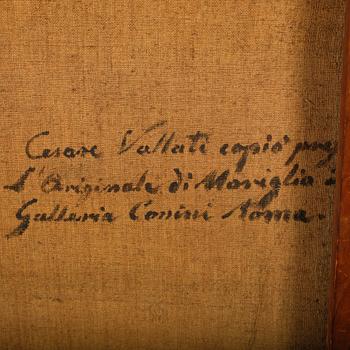 Cesare Vallati copiò preg
L'Originale di Maviglia
Galleria Corsini Roma.